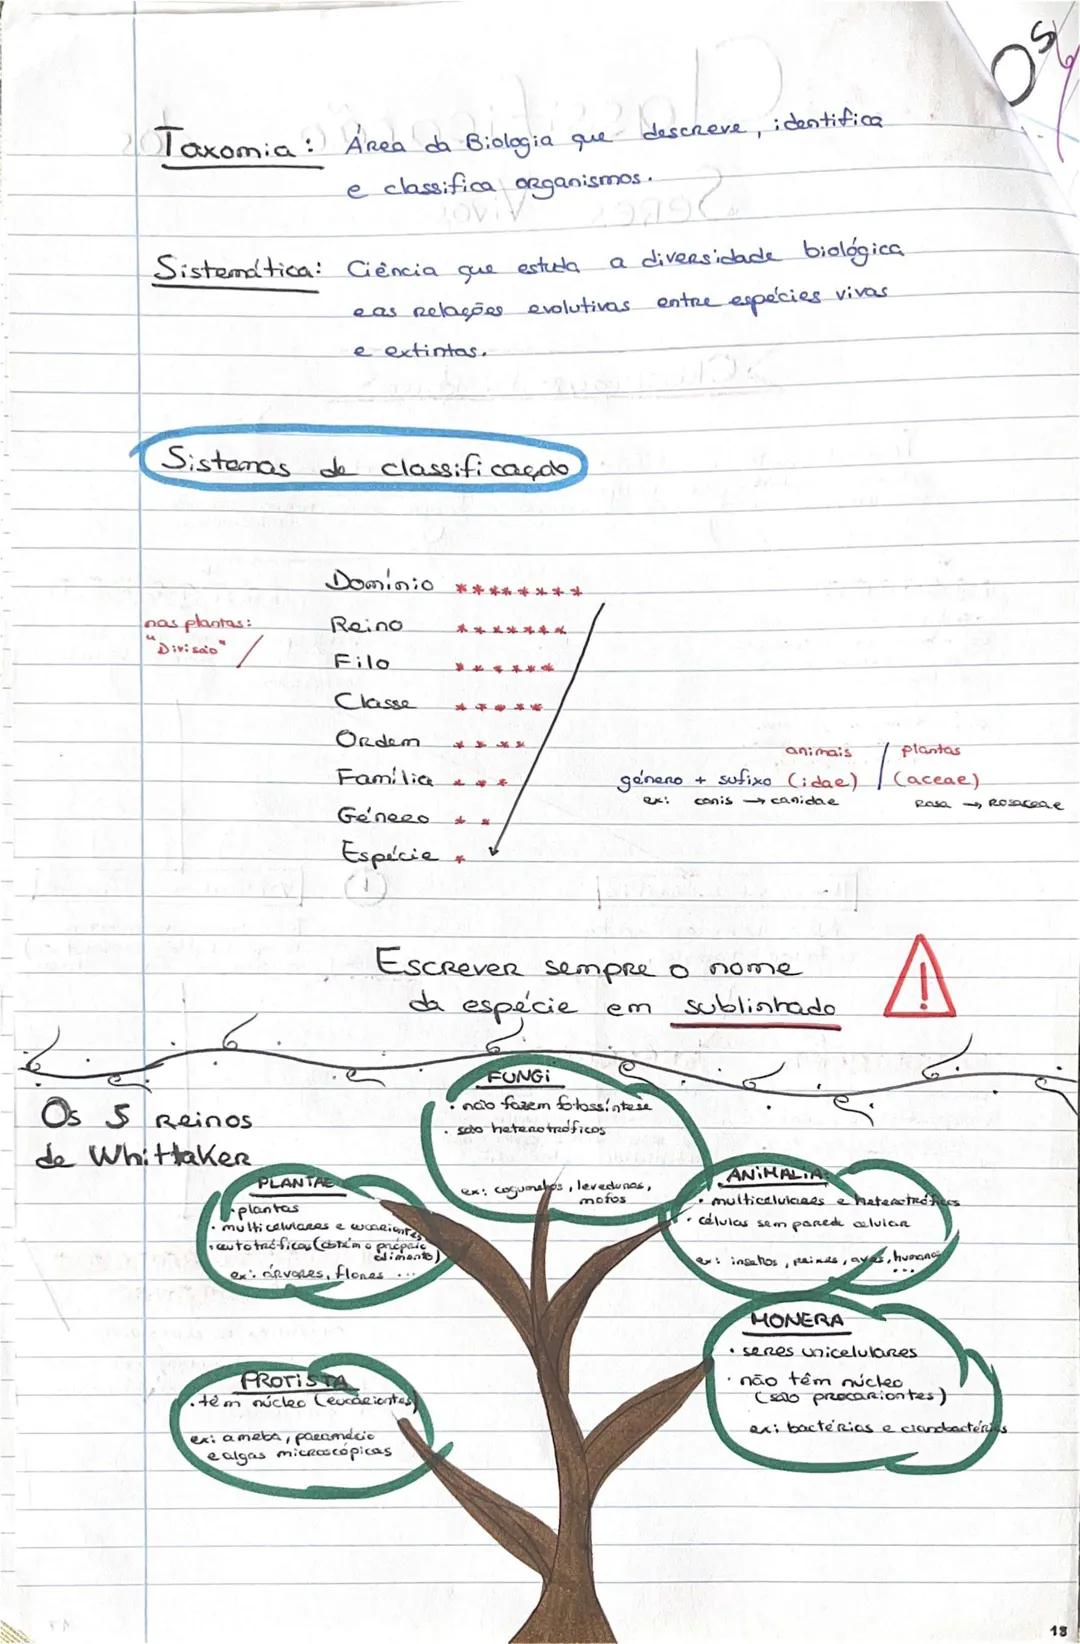 Os
Taxomia: Área da Biologia que descreve, identifica
e classifica organismos.
Sistemática: Ciência que estuda a diversidade biológica
e as relações evolutivas entre espécies vivas
e extintas.
Sistemas de classificação
Domínio ********
nas plantas:
"Divisão"
Reino *******
Filo ******
Classe *****
Ordem ****
Família ***
Género **
Espécie *
animais / plantas
género + sufixo (idae) / (aceae)
ex: canis → canidae
Rosa → Rosaceae
Escrever sempre o nome
da espécie em sublinhado
Os 5 Reinos
de Whittaker
FUNGi
• não fazem fotossíntese
• são heterotróficos
ex: cogumelos, leveduras,
mofos
PLANTAE
• plantas
• multicelulares e eucariontes
• autotróficas (obtêm o próprio
alimento)
ex: árvores, flores ...
ANiMALiA
• multicelulares e heterotróficos
• células sem parede celular
ex: insetos, peixes, aves, humanos
...
MONERA
• seres unicelulares
• não têm núcleo
(são procariontes)
ex: bactérias e cianobactérias
PROTiSTA
• têm núcleo (eucariontes)
ex: ameba, paramécio
e algas microscópicas
18